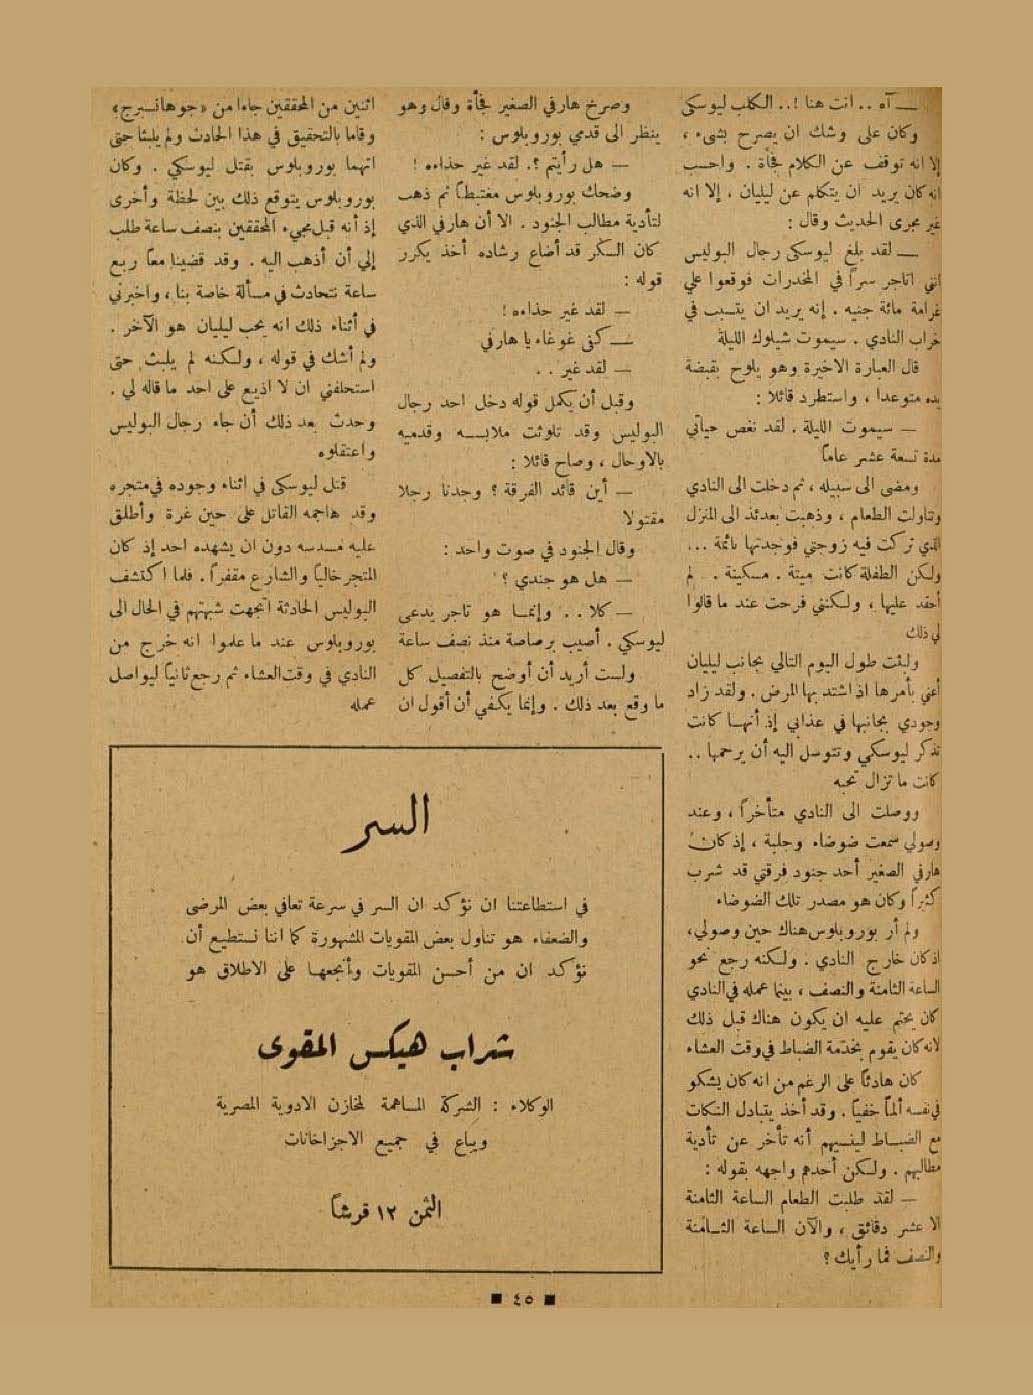 — آه .. انت هنا !.. الكلب ليوسكى
وكان على وشك ان يصرح بشىء ،
إلا انه توقف عن الكلام فجأة . واحسب
انه كان يريد ان يتكلم عن ليليان ، إلا انه
غير مجرى الحديث وقال :
— لقد بلغ ليوسكى رجال البوليس
انني اتاجر سراً في المخدرات فوقعوا علي
غرامة مائة جنيه . إنه يريد ان يتسبب في
خراب النادي . سيموت شيلوك الليلة
قال العبارة الاخيرة وهو يلوح بقبضة
يده متوعدا ، واستطرد قائلا :
— سيموت الليلة . لقد نغص حياتي
مدة تسعة عشر عاماً
ومضى الى سبيله ، ثم دخلت الى النادي
وتناولت الطعام ، وذهبت بعدئذ الى المنزل
الذي تركت فيه زوجتي فوجدتها نائمة ...
ولكن الطفلة كانت ميتة . مسكينة . لم
أحقد عليها ، ولكنني فرحت عند ما قالوا
لي ذلك
ولبثت طول اليوم التالي بجانب ليليان
أعني بأمرها اذ اشتد بها المرض . ولقد زاد
وجودي بجانبها في عذابي إذ أنها كانت
تذكر ليوسكي وتتوسل اليه أن يرحمها ..
كانت ما تزال تحبه
ووصلت الى النادي متأخراً ، وعند
وصولي سمعت ضوضاء وجلبة ، إذ كان
هارفي الصغير أحد جنود فرقتي قد شرب
كثيراً وكان هو مصدر تلك الضوضاء
ولم أر بوروبلوس هناك حين وصولي،
اذ كان خارج النادي . ولكنه رجع نحو
الساعة الثامنة والنصف ، بينما عمله في النادي
كان يحتم عليه ان يكون هناك قبل ذلك
لانه كان يقوم بخدمة الضباط في وقت العشاء
كان هادئاً على الرغم من انه كان يشكو
في نفسه ألماً خفياً . وقد أخذ يتبادل النكات
مع الضباط لينسيهم أنه تأخر عن تأدية
مطالبهم . ولكن أحدهم واجهه بقوله :
— لقد طلبت الطعام الساعة الثامنة
الا عشر دقائق ، والآن الساعة الثامنة
والنصف فما رأيك ؟
وصرخ هارفي الصغير فجأة وقال وهو
ينظر الى قدمي بوروبلوس :
— هل رأيتم ؟. لقد غير حذاءه !
وضحك بوروبلوس مغتبطاً ثم ذهب
لتأدية مطالب الجنود . الا أن هارفي الذي
كان السكر قد أضاع رشاده أخذ يكرر
قوله :
— لقد غير حذاءه !
— كفى غوغاء يا هارفي
— لقد غير . .
وقبل أن يكمل قوله دخل احد رجال
البوليس وقد تلوثت ملابسه وقدميه
بالاوحال ، وصاح قائلا :
— أين قائد الفرقة ؟ وجدنا رجلا
مقتولا
وقال الجنود في صوت واحد :
— هل هو جندي ؟
— كلا .. وإنما هو تاجر يدعى
ليوسكي . أصيب برصاصة منذ نصف ساعة
ولست أريد أن أوضح بالتفصيل كل
ما وقع بعد ذلك . وإنما يكفي أن أقول ان
اثنين من المحققين جاءا من «جوهانسبرج»
وقاما بالتحقيق في هذا الحادث ولم يلبثا حتى
اتهما بوروبلوس بقتل ليوسكي . وكان
بوروبلوس يتوقع ذلك بين لحظة وأخرى
إذ أنه قبل مجيء المحققين بنصف ساعة طلب
إلي أن أذهب اليه . وقد قضينا معاً ربع
ساعة نتحادث في مسألة خاصة بنا ، واخبرني
في أثناء ذلك انه يحب ليليان هو الآخر .
ولم أشك في قوله ، ولكنه لم يلبث حتى
استحلفني ان لا اذيع على احد ما قاله لي .
وحدث بعد ذلك أن جاء رجال البوليس
واعتقلوه
قتل ليوسكى في اثناء وجوده في متجره
وقد هاجمه القاتل على حين غرة وأطلق
عليه مسدسه دون ان يشهده احد إذ كان
المتجر خالياً والشارع مقفراً . فلما اكتشف
البوليس الحادثة اتجهت شبهتهم في الحال الى
بوروبلوس عند ما علموا انه خرج من
النادي في وقت العشاء ثم رجع ثانياً ليواصل
عمله
السر
في استطاعتنا ان نؤكد ان السر في سرعة تعافي بعض المرضى
والضعفاء هو تناول بعض المقويات المشهورة كما اننا نستطيع أن
نؤكد ان من أحسن المقويات وأنجعها على الاطلاق هو
شراب هيكس المقوى
الوكلاء : الشركة المساهمة لمخازن الادوية المصرية
ويباع في جميع الاجزاخانات
الثمن ١٢ قرشاً
■ ٤٥ ■